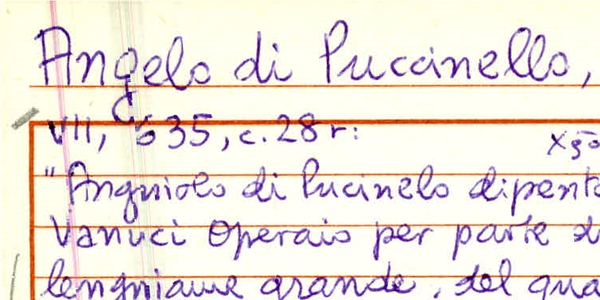 Angelo di Puccinello,
VII, 635, c. 28 r:
"Angniolo di Pucinelo dipento
Vanuci Operaio per parte d
lengniame grande, del qua